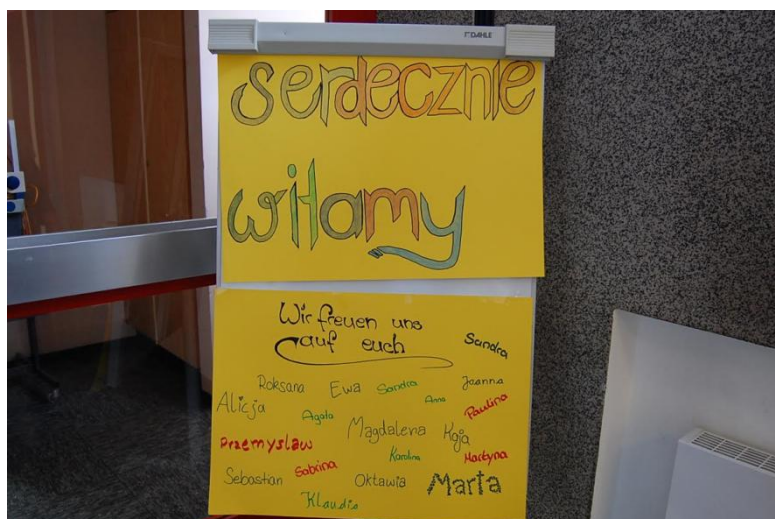 DAHLE
serdecznie
witamy
Wir freuen uns
auf euch
Sandra
Roksana Ewa Sandra Joanna
Alicja Agata Anna Paulina
Magdalena Kaja
Przemyslaw Karolina Martyna
Sebastian Sabrina Oktawia Marta
Klaudia